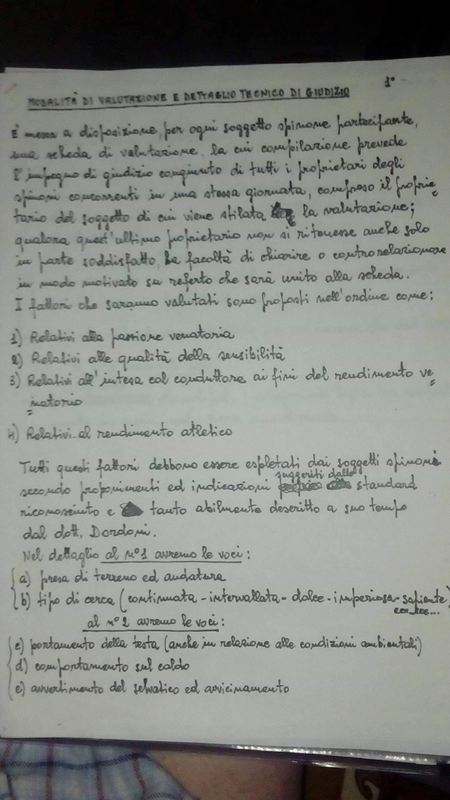 1°
MODALITÀ DI VALUTAZIONE E DETTAGLIO TECNICO DI GIUDIZIO
È messa a disposizione, per ogni soggetto spinone partecipante,
una scheda di valutazione, la cui compilazione prevede
l'impegno di giudizio congiunto di tutti i proprietari degli
spinoni concorrenti in una stessa giornata, compreso il proprie=
tario del soggetto di cui viene stilata la valutazione;
qualora quest'ultimo proprietario non si ritenesse anche solo
in parte soddisfatto, ha facoltà di chiarire o controrelazionare
in modo motivato su referto che sarà unito alla scheda.
I fattori che saranno valutati sono proposti nell'ordine come:
1) Relativi alla passione venatoria
2) Relativi alle qualità della sensibilità
3) Relativi all'intesa col conduttore ai fini del rendimento ve=
natorio
4) Relativi al rendimento atletico
Tutti questi fattori debbono essere espletati dai soggetti spinoni
secondo proponimenti ed indicazioni suggeriti dallo standard
riconosciuto e tanto abilmente descritto a suo tempo
dal dott. Dordoni.
Nel dettaglio al n° 1 avremo le voci:
a) presa di terreno ed andatura
b) tipo di cerca (continuata - intervallata - dolce - imperiosa - sapiente)
ecc. ecc...
al n° 2 avremo le voci:
c) portamento della testa (anche in relazione alle condizioni ambientali)
d) comportamento sul caldo
e) avvertimento del selvatico ed avvicinamento